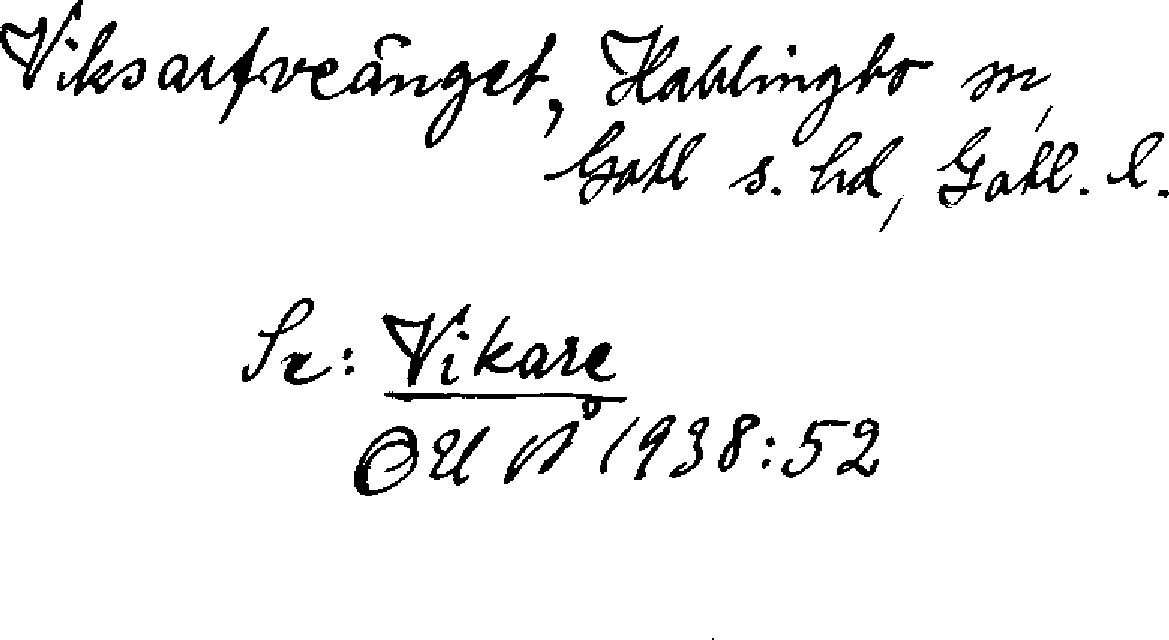 Viksarfveänget, Hablingbo sn,
Gotl s. hd, Gotl. l.
Se: Vikare
OUÅ 1938:52